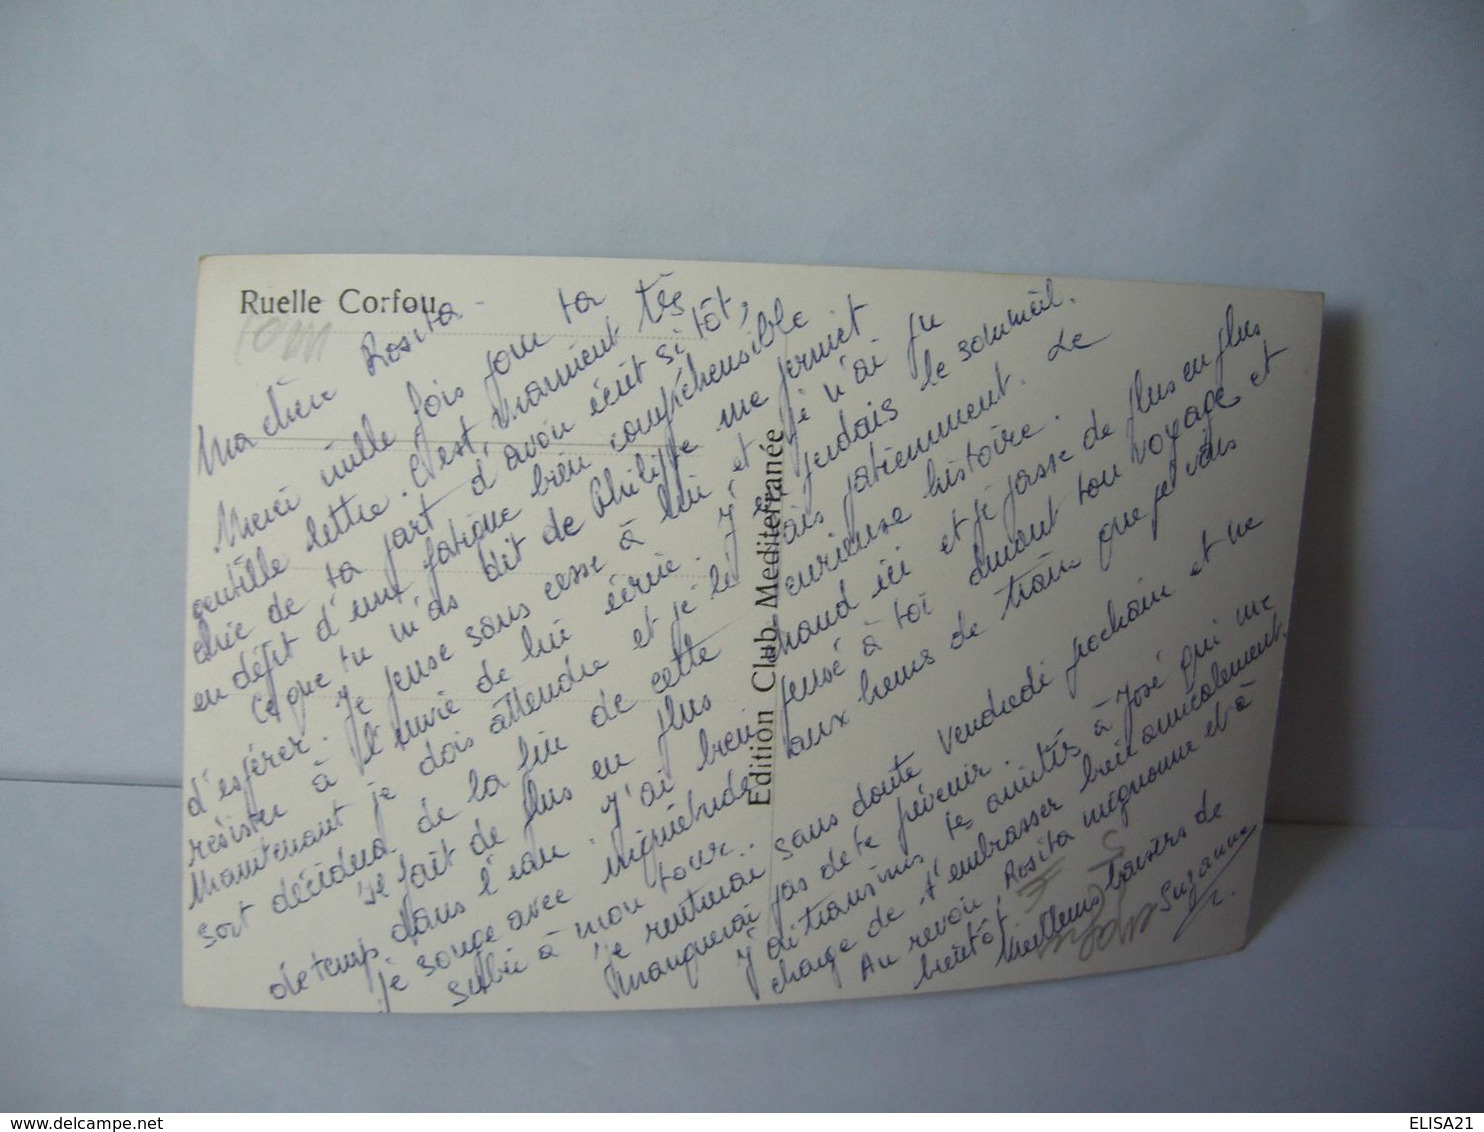 Ruelle Corfou
Ma chère Rosita -
Merci mille fois pour ta
gentille lettre. C'est vraiment très
chic de ta part d'avoir écrit si tôt,
en dépit d'une fatigue bien compréhensible
Ce que tu m'as dit de Philippe me permet
d'espérer. Je pense sans cesse à lui et je n'ai pu
résister à l'envie de lui écrire. J'y perdais le sommeil.
Maintenant je dois attendre et je le fais patiemment. Le
sort décidera de la fin de cette curieuse histoire.
Il fait de plus en plus chaud ici et je passe de plus en plus
de temps dans l'eau. J'ai bien pensé à toi durant ton voyage et
je songe avec inquiétude aux heures de train que je vais
subir à mon tour..
Je rentrerai sans doute vendredi prochain et ne
manquerai pas de te prévenir.
J'ai transmis tes amitiés à José qui me
charge de t'embrasser bien amicalement.
Au revoir, Rosita mignonne et à
bientôt,
Meilleurs baisers de
Suzanne
Edition Club Mediterranée
delcampe.net
ELISA21